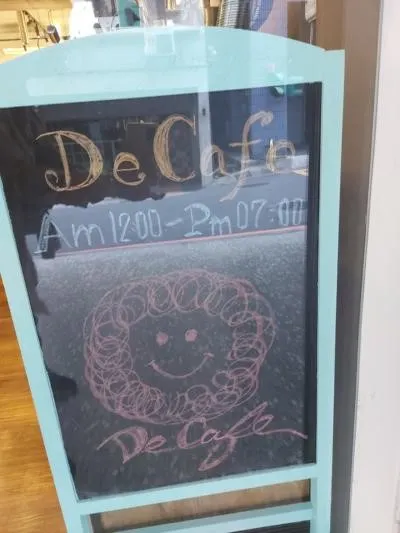 De Cafe
Am 12:00 - Pm 07:00
De Cafe